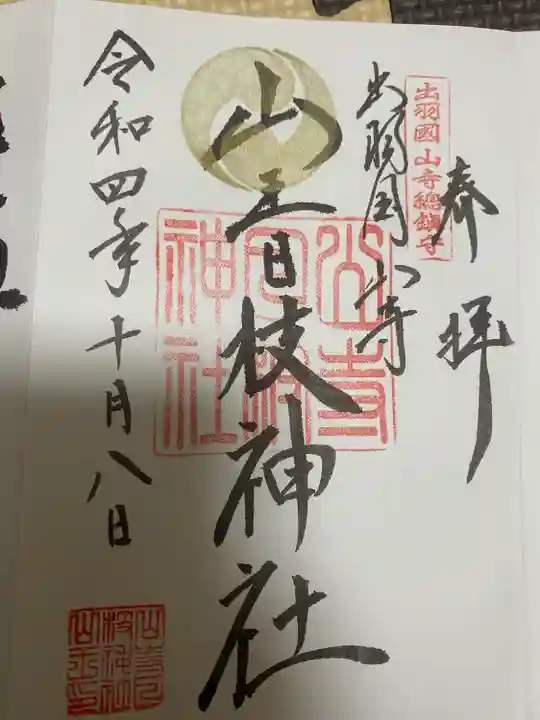 奉拝
出羽國山寺總鎮守
出羽国山寺
山王日枝神社
山寺日枝神社
令和四年十月八日